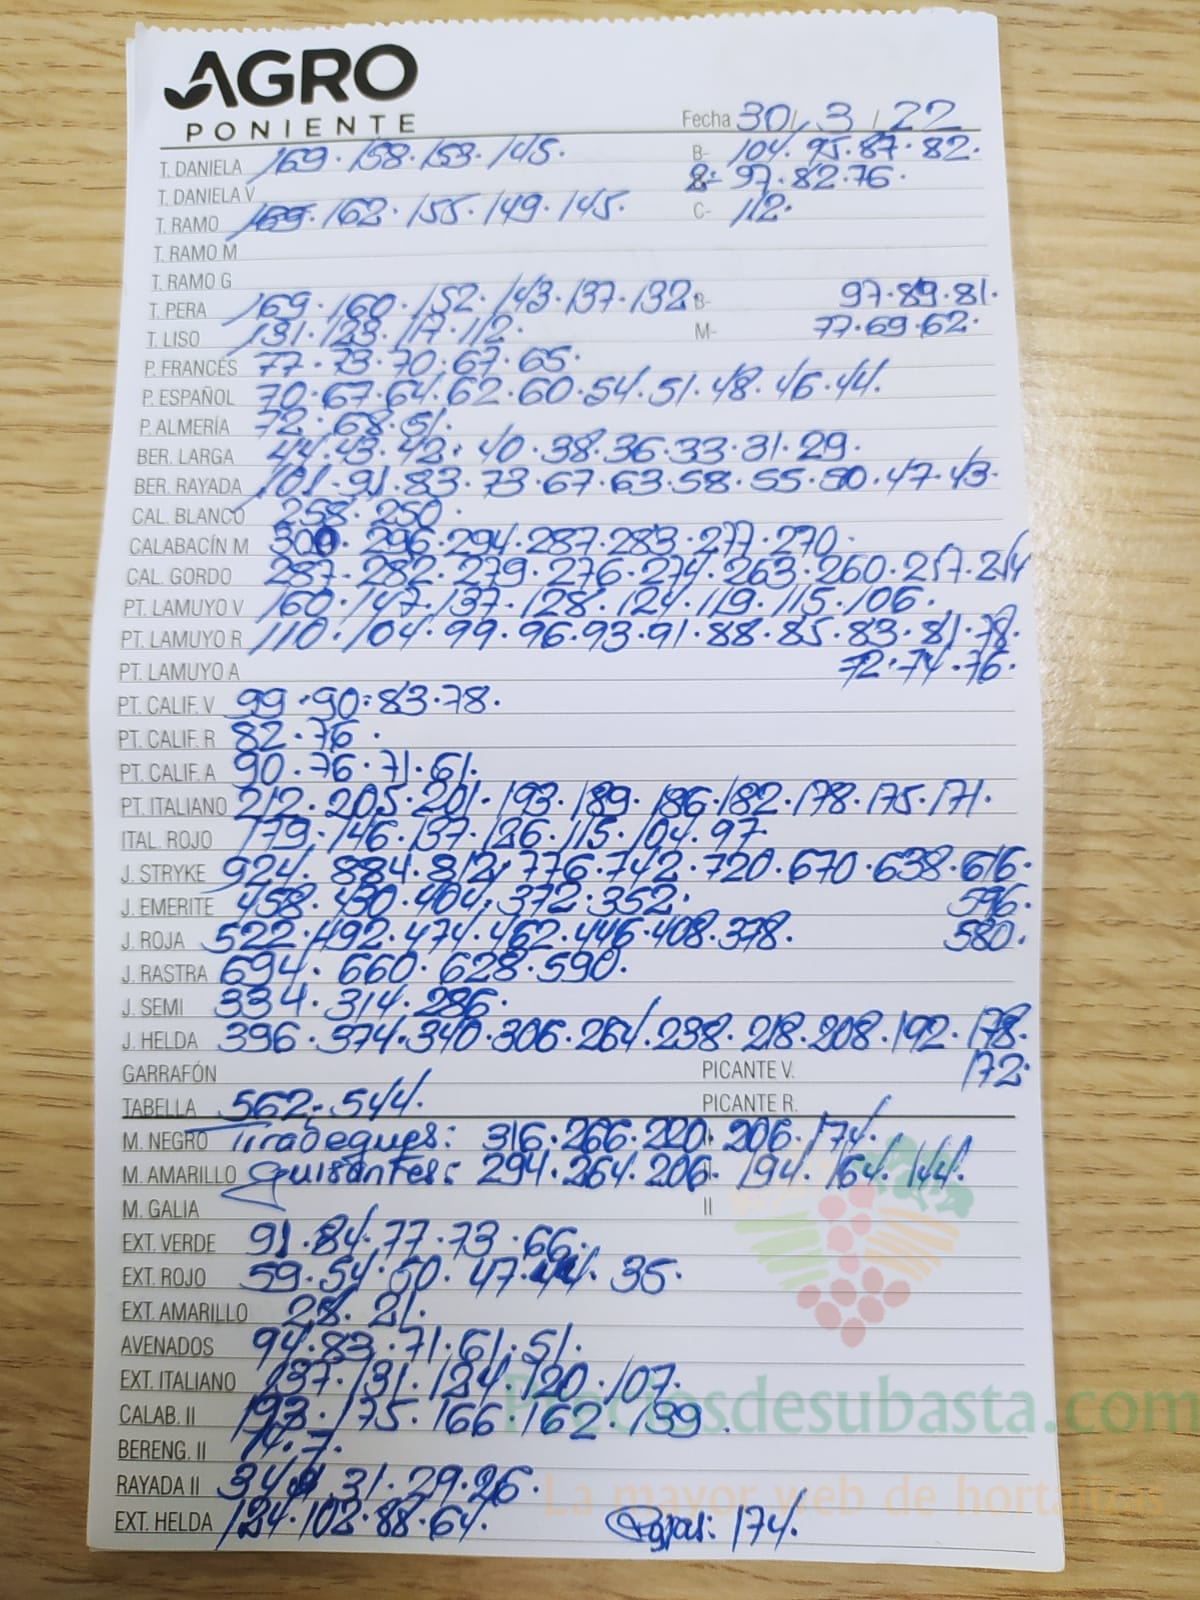 AGRO
PONIENTE
Fecha 30 / 3 / 22
T. DANIELA 169. 158. 153. 145. B- 104. 95. 87. 82.
T. DANIELA V B- 97. 82. 76.
T. RAMO 169. 162. 155. 149. 145. C- 112.
T. RAMO M
T. RAMO G
T. PERA 169. 160. 152. 143. 137. 132. B- 97. 89. 81.
T. LISO 131. 123. 117. 112. M- 77. 69. 62.
P. FRANCÉS 77. 73. 70. 67. 65.
P. ESPAÑOL 70. 67. 64. 62. 60. 54. 51. 48. 46. 44.
P. ALMERÍA 72. 68. 51.
BER. LARGA 44. 43. 42. 40. 38. 36. 33. 31. 29.
BER. RAYADA 101. 91. 83. 73. 67. 63. 58. 55. 50. 47. 43.
CAL. BLANCO 258. 250.
CALABACÍN M 300. 296. 294. 287. 283. 277. 270.
CAL. GORDO 287. 282. 279. 276. 274. 263. 260. 257. 254
PT. LAMUYO V 160. 147. 137. 128. 124. 119. 115. 106.
PT. LAMUYO R 110. 104. 99. 96. 93. 91. 88. 85. 83. 81. 78.
PT. LAMUYO A 72. 74. 76.
PT. CALIF. V 99. 90. 83. 78.
PT. CALIF. R 82. 76.
PT. CALIF. A 90. 76. 71. 61.
PT. ITALIANO 212. 205. 201. 193. 189. 186. 182. 178. 175. 171.
ITAL. ROJO 179. 146. 137. 126. 115. 104. 97.
J. STRYKE 924. 884. 812. 776. 742. 720. 670. 638. 616.
J. EMERITE 458. 430. 404. 372. 352. 596.
J. ROJA 522. 492. 474. 462. 446. 408. 378. 580.
J. RASTRA 694. 660. 628. 590.
J. SEMI 334. 314. 286.
J. HELDA 396. 374. 340. 306. 264. 238. 218. 208. 192. 178.
GARRAFÓN PICANTE V. 172.
TABELLA 562. 544. PICANTE R.
M. NEGRO Tirabeques: 316. 266. 220. 206. 174.
M. AMARILLO guisantes: 294. 264. 206. 194. 164. 144.
M. GALIA II
EXT. VERDE 91. 84. 77. 73. 66.
EXT. ROJO 59. 54. 50. 47. 44. 35.
EXT. AMARILLO 28. 21.
AVENADOS 94. 83. 71. 61. 51.
EXT. ITALIANO 137. 131. 124. 120. 107.
Preciosdesubasta.com
CALAB. II 193. 175. 166. 162. 139.
BERENG. II 14. 7.
RAYADA II 34. 31. 29. 26.
La mayor web de hortalizas
EXT. HELDA 124. 102. 88. 64. Rojas: 174.